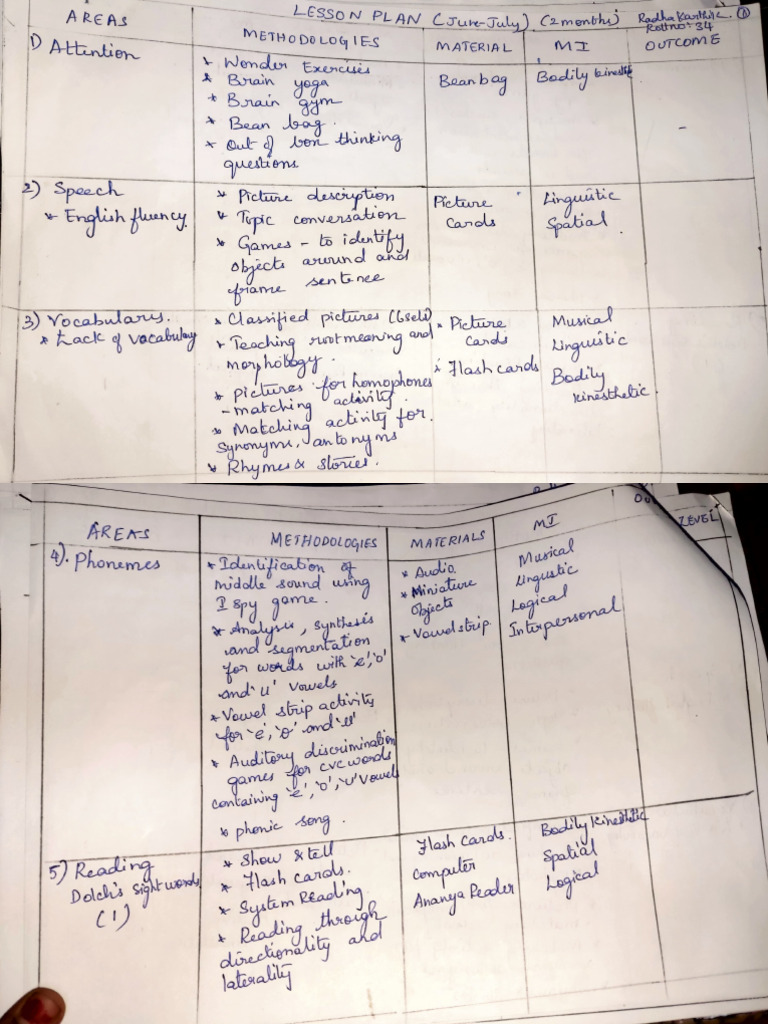 AREAS
LESSON PLAN (June-July) (2 months)
Radha Karthik
Roll no: 34
METHODOLOGIES
MATERIAL
MI
OUTCOME
1) Attention
* Wonder Exercises
* Brain yoga
* Brain gym
* Bean bag.
* Out of box thinking
questions
Bean bag
Bodily kinesthetic
-
2) Speech
* English fluency.
* Picture description
* Topic conversation
* Games - to identify
objects around and
frame sentence
Picture
Cards
Linguistic
Spatial
3) Vocabulary.
* Lack of vocabulary
* Classified pictures (6sets)
* Teaching root meaning and
morphology.
* Pictures for homophones
- matching activity.
* Matching activity for
Synonyms, antonyms
* Rhymes & stories.
* Picture
cards
* Flash cards
Musical
Linguistic
Bodily
kinesthetic
AREAS
METHODOLOGIES
MATERIALS
MI
LEVEL
4). Phonemes
* Identification of
middle sound using
I spy game.
* Analysis, synthesis
and segmentation
for words with 'e', 'o'
and 'u' vowels
* Vowel strip activity
for 'e', 'o' and 'u'
* Auditory discrimination
games for cvc words
containing 'e', 'o', 'u' vowels
* phonic song.
* Audio
* Miniature
Objects
* Vowel strip
Musical
Linguistic
Logical
Interpersonal
5) Reading
Dolch's sight words
(1)
* Show & tell
* Flash cards.
* System Reading.
* Reading through
directionality and
laterality
Flash cards.
Computer
Ananya Reader
Bodily kinesthetic
Spatial
Logical